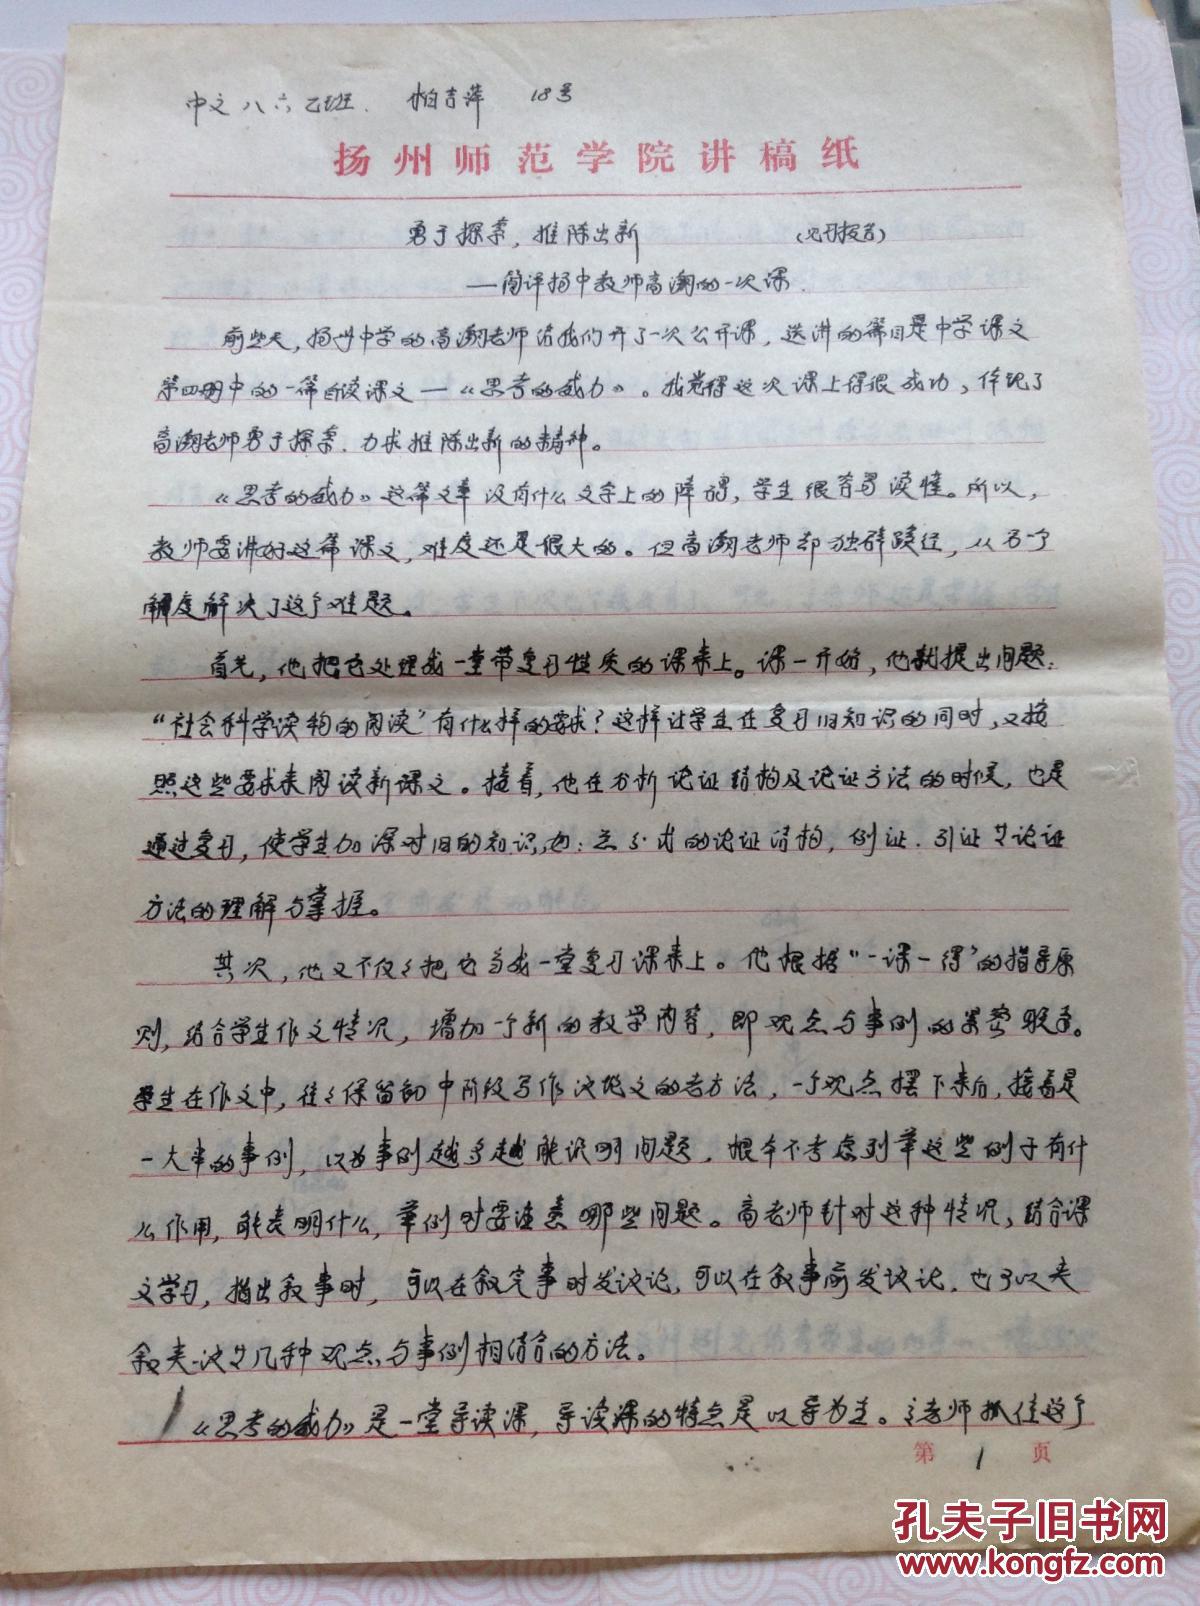 中文八六乙班. 柏吉萍 18号
扬州师范学院讲稿纸
勇于探索，推陈出新 （见习报告）
——简评扬中教师高潮的一次课.
前些天，扬州中学的高潮老师给我们开了一次公开课，选讲的篇目是中学课文
第四册中的一篇自读课文——《思考的威力》。我觉得这次课上得很成功，体现了
高潮老师勇于探索、力求推陈出新的精神。
《思考的威力》这篇文章没有什么文字上的障碍，学生很容易读懂。所以，
教师要讲好这篇课文，难度还是很大的。但高潮老师却独辟蹊径，从另一个
角度解决了这个难题。
首先，他把它处理成一堂带复习性质的课来上。课一开始，他就提出问题：
“社会科学读物的阅读”有什么样的要求？这样让学生在复习旧知识的同时，又按
照这些要求来阅读新课文。接着，他在分析论证结构及论证方法的时候，也是
通过复习，使学生加深对旧的知识，如：总分式的论证结构，例证、引证等论证
方法的理解与掌握。
其次，他又不仅仅把它当成一堂复习课来上。他根据“一课一得”的指导原
则，结合学生作文情况，增加一个新的教学内容，即观点与事例的紧密联系。
学生在作文中，往往保留初中阶段写作议论文的老方法，一个观点摆下来后，接着是
一大串的事例，以为事例越多越能说明问题，根本不考虑列举这些例子有什
么作用，能表明什么，举例时要注意哪些问题。高老师针对这种情况，结合课
文学习，指出叙事时，可以在叙完事时发议论，可以在叙事前发议论，也可以夹
叙夹议等几种观点与事例相结合的方法。
《思考的威力》是一堂导读课，导读课的特点是以导为主。高老师抓住这个
第 1 页
孔夫子旧书网
www.kongfz.com